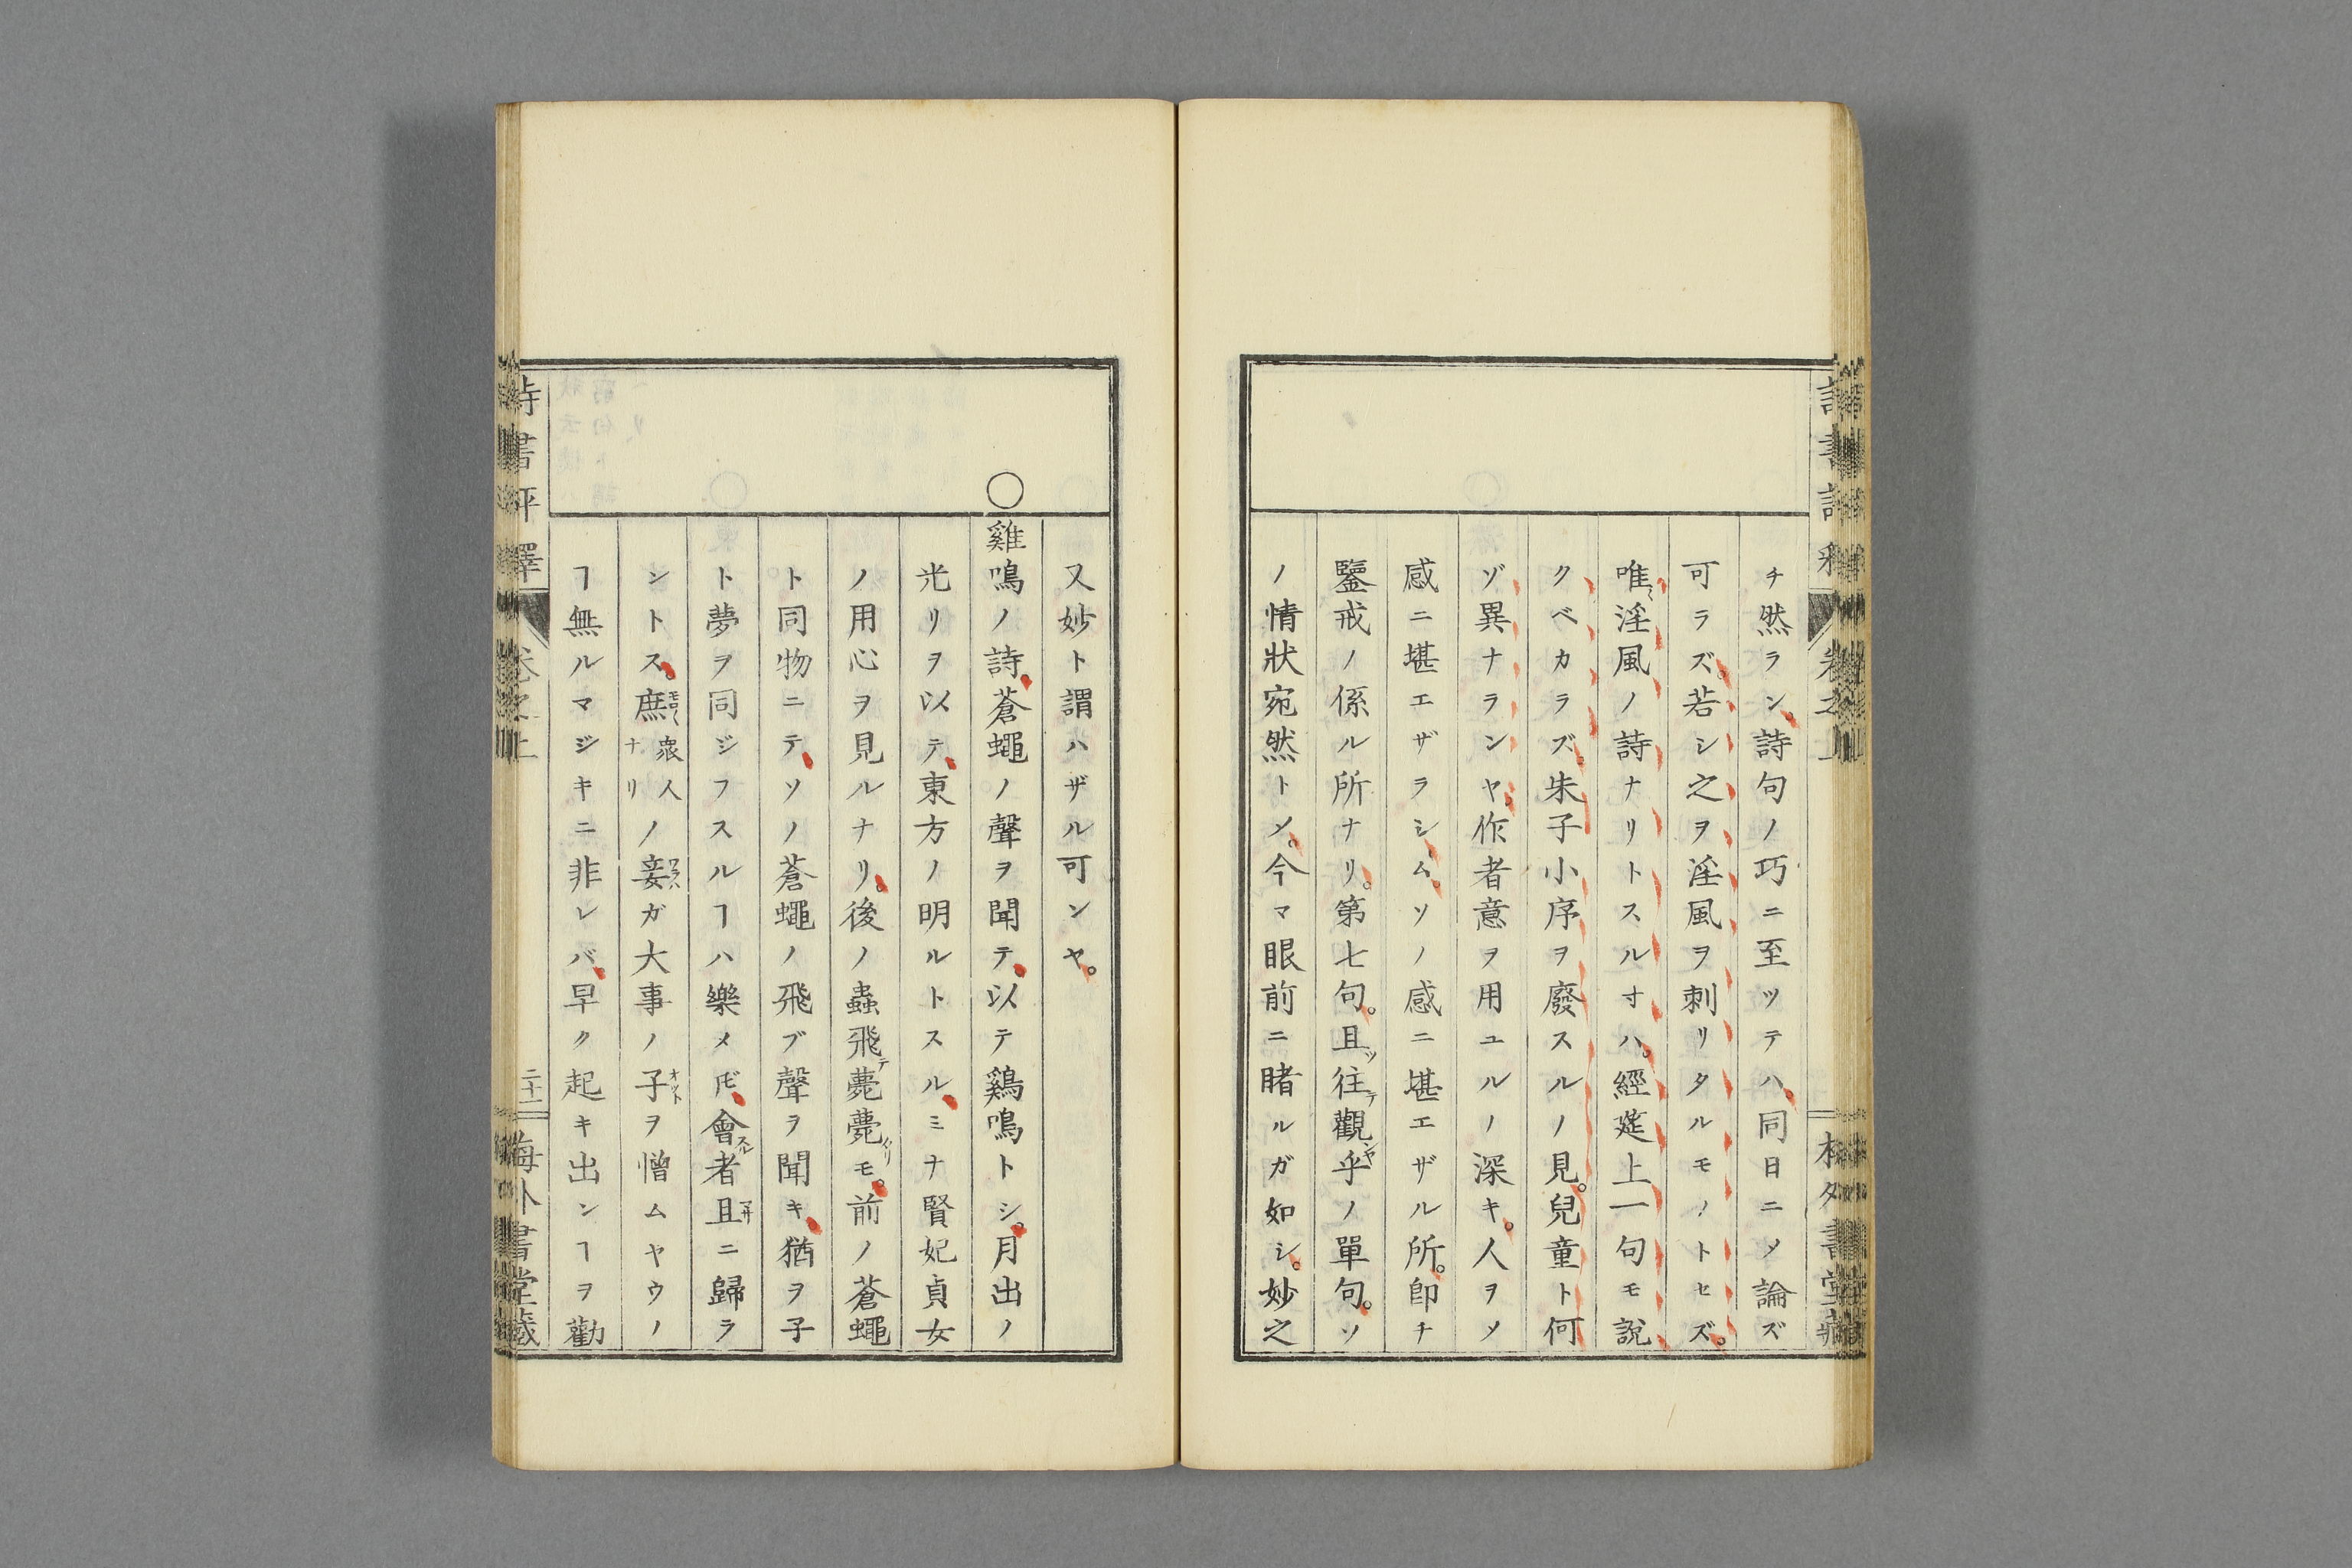 チ然ラン。詩句ノ巧ニ至ツテハ。同日ニ〆論ズ
可ラズ。若シ之ヲ淫風ヲ刺リタルモノトセズ。
唯〻淫風ノ詩ナリトスルオハ。經莚上一句モ說
クベカラズ。朱子小序ヲ廢スルノ見。兒童ト何
ゾ異ナランヤ。作者意ヲ用ユルノ深キ。人ヲ〆
感ニ堪エザラシム。ソノ感ニ堪エザル所。卽チ
鑒戒ノ係ル所ナリ。第七句。且ツ往テ觀ンヤ乎ノ單句。ソ
ノ情狀宛然ト〆。今マ眼前ニ睹ルガ如シ。妙之
又妙ト謂ハザル可ンヤ。
○雞鳴ノ詩。蒼蠅ノ聲ヲ聞テ。以テ鷄鳴トシ。月出ノ
光リヲ以テ。東方ノ明ルトスル。ミナ賢妃貞女
ノ用心ヲ見ルナリ。後ノ蟲飛テ薨薨タリモ。前ノ蒼蠅
ト同物ニテ。ソノ蒼蠅ノ飛ブ聲ヲ聞キ。猶ヲ子
ト夢ヲ同ジフスルヿハ樂メ𪜈。會スル者且マサニ歸ラ
ントス。庶衆人ナリノ妾ガ大事ノ子オットヲ憎ムヤウノ
ヿ無ルマジキニ非レバ。早ク起キ出ンヿヲ勸
詩書評釋
卷之上
二十一
梅外書堂藏